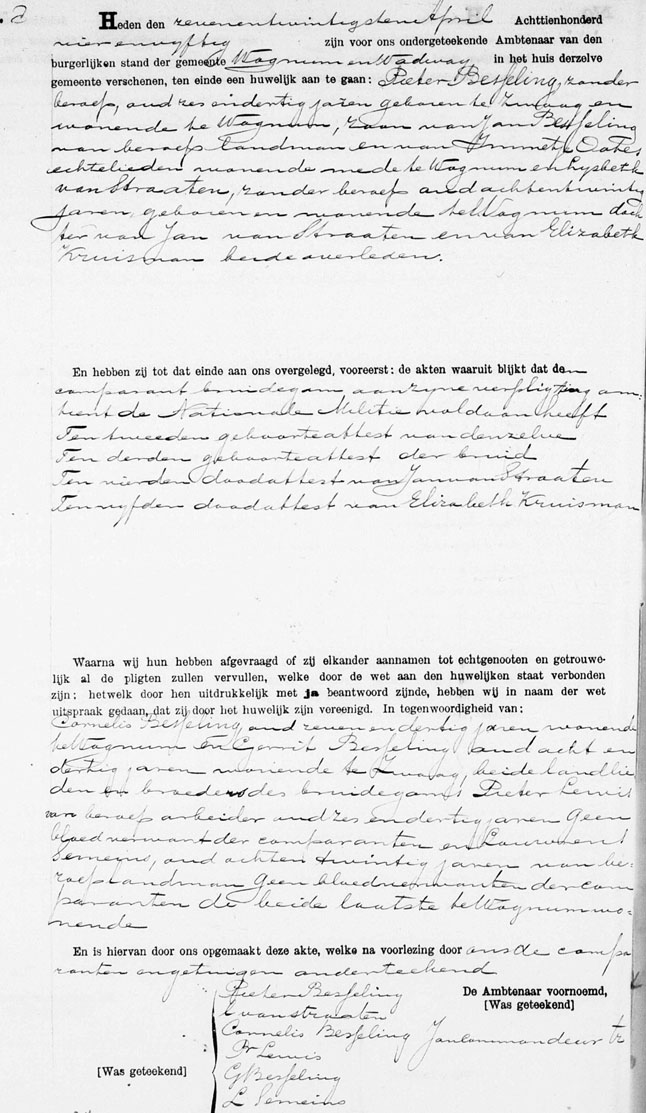 Heden den zevenentwintigsten April Achttienhonderd
vierenvyftig zijn voor ons ondergeteekende Ambtenaar van den
burgerlijken stand der gemeente Wognum en Wadway in het huis derzelve
gemeente verschenen, ten einde een huwelijk aan te gaan: Pieter Besseling, zonder
beroep, oud zes en dertig jaren geboren te Zwaag en
wonende te Wognum, zoon van Jan Besseling
van beroep landman en van Immetje
echtelieden wonende mede te Wognum en Lysbeth
van Straaten, zonder beroep oud achtentwintig
jaren, geboren en wonende te Wognum doch
ter van Jan van Straaten en van Elizabeth
Kruisman beide overleden.
En hebben zij tot dat einde aan ons overgelegd, vooreerst: de akten waaruit blijkt dat de
comparant bruidegom aan zyne verpligting om:
trent de Nationale Militie voldaan heeft
Ten tweeden geboorteattest van denzelve
Ten derden geboorteattest der bruid
Ten vierden doodattest van Jan van Straaten
Ten vyfden doodattest van Elizabeth Kruisman
Waarna wij hun hebben afgevraagd of zij elkander aannamen tot echtgenooten en getrouwe-
lijk al de pligten zullen vervullen, welke door de wet aan den huwelijken staat verbonden
zijn; hetwelk door hen uitdrukkelijk met ja beantwoord zijnde, hebben wij in naam der wet
uitspraak gedaan, dat zij door het huwelijk zijn vereenigd. In tegenwoordigheid van:
Cornelis Besseling, oud zeven en dertig jaren wonende
te Wognum en Gerrit Besseling oud acht en
dertig jaren wonende te Zwaag, beide landlie
den en broeders des bruidegoms Pieter Lewis
van beroep arbeider oud zes en dertig jaren Geen
bloedverwant der comparanten en Lourens
Semeins, oud acht en twintig jaren van be-
roep landman Geen bloedverwanten der com
paranten de beide laatste te Wognum wo-
nende
En is hiervan door ons opgemaakt deze akte, welke na voorlezing door ons de compa
ranten en getuigen onderteekend
Pieter Besseling De Ambtenaar voornoemd,
[Was geteekend]
E van straaten
Cornelis Besseling Jan Commandeur
Pr Lewis
[Was geteekend] G Besseling
L Semeins